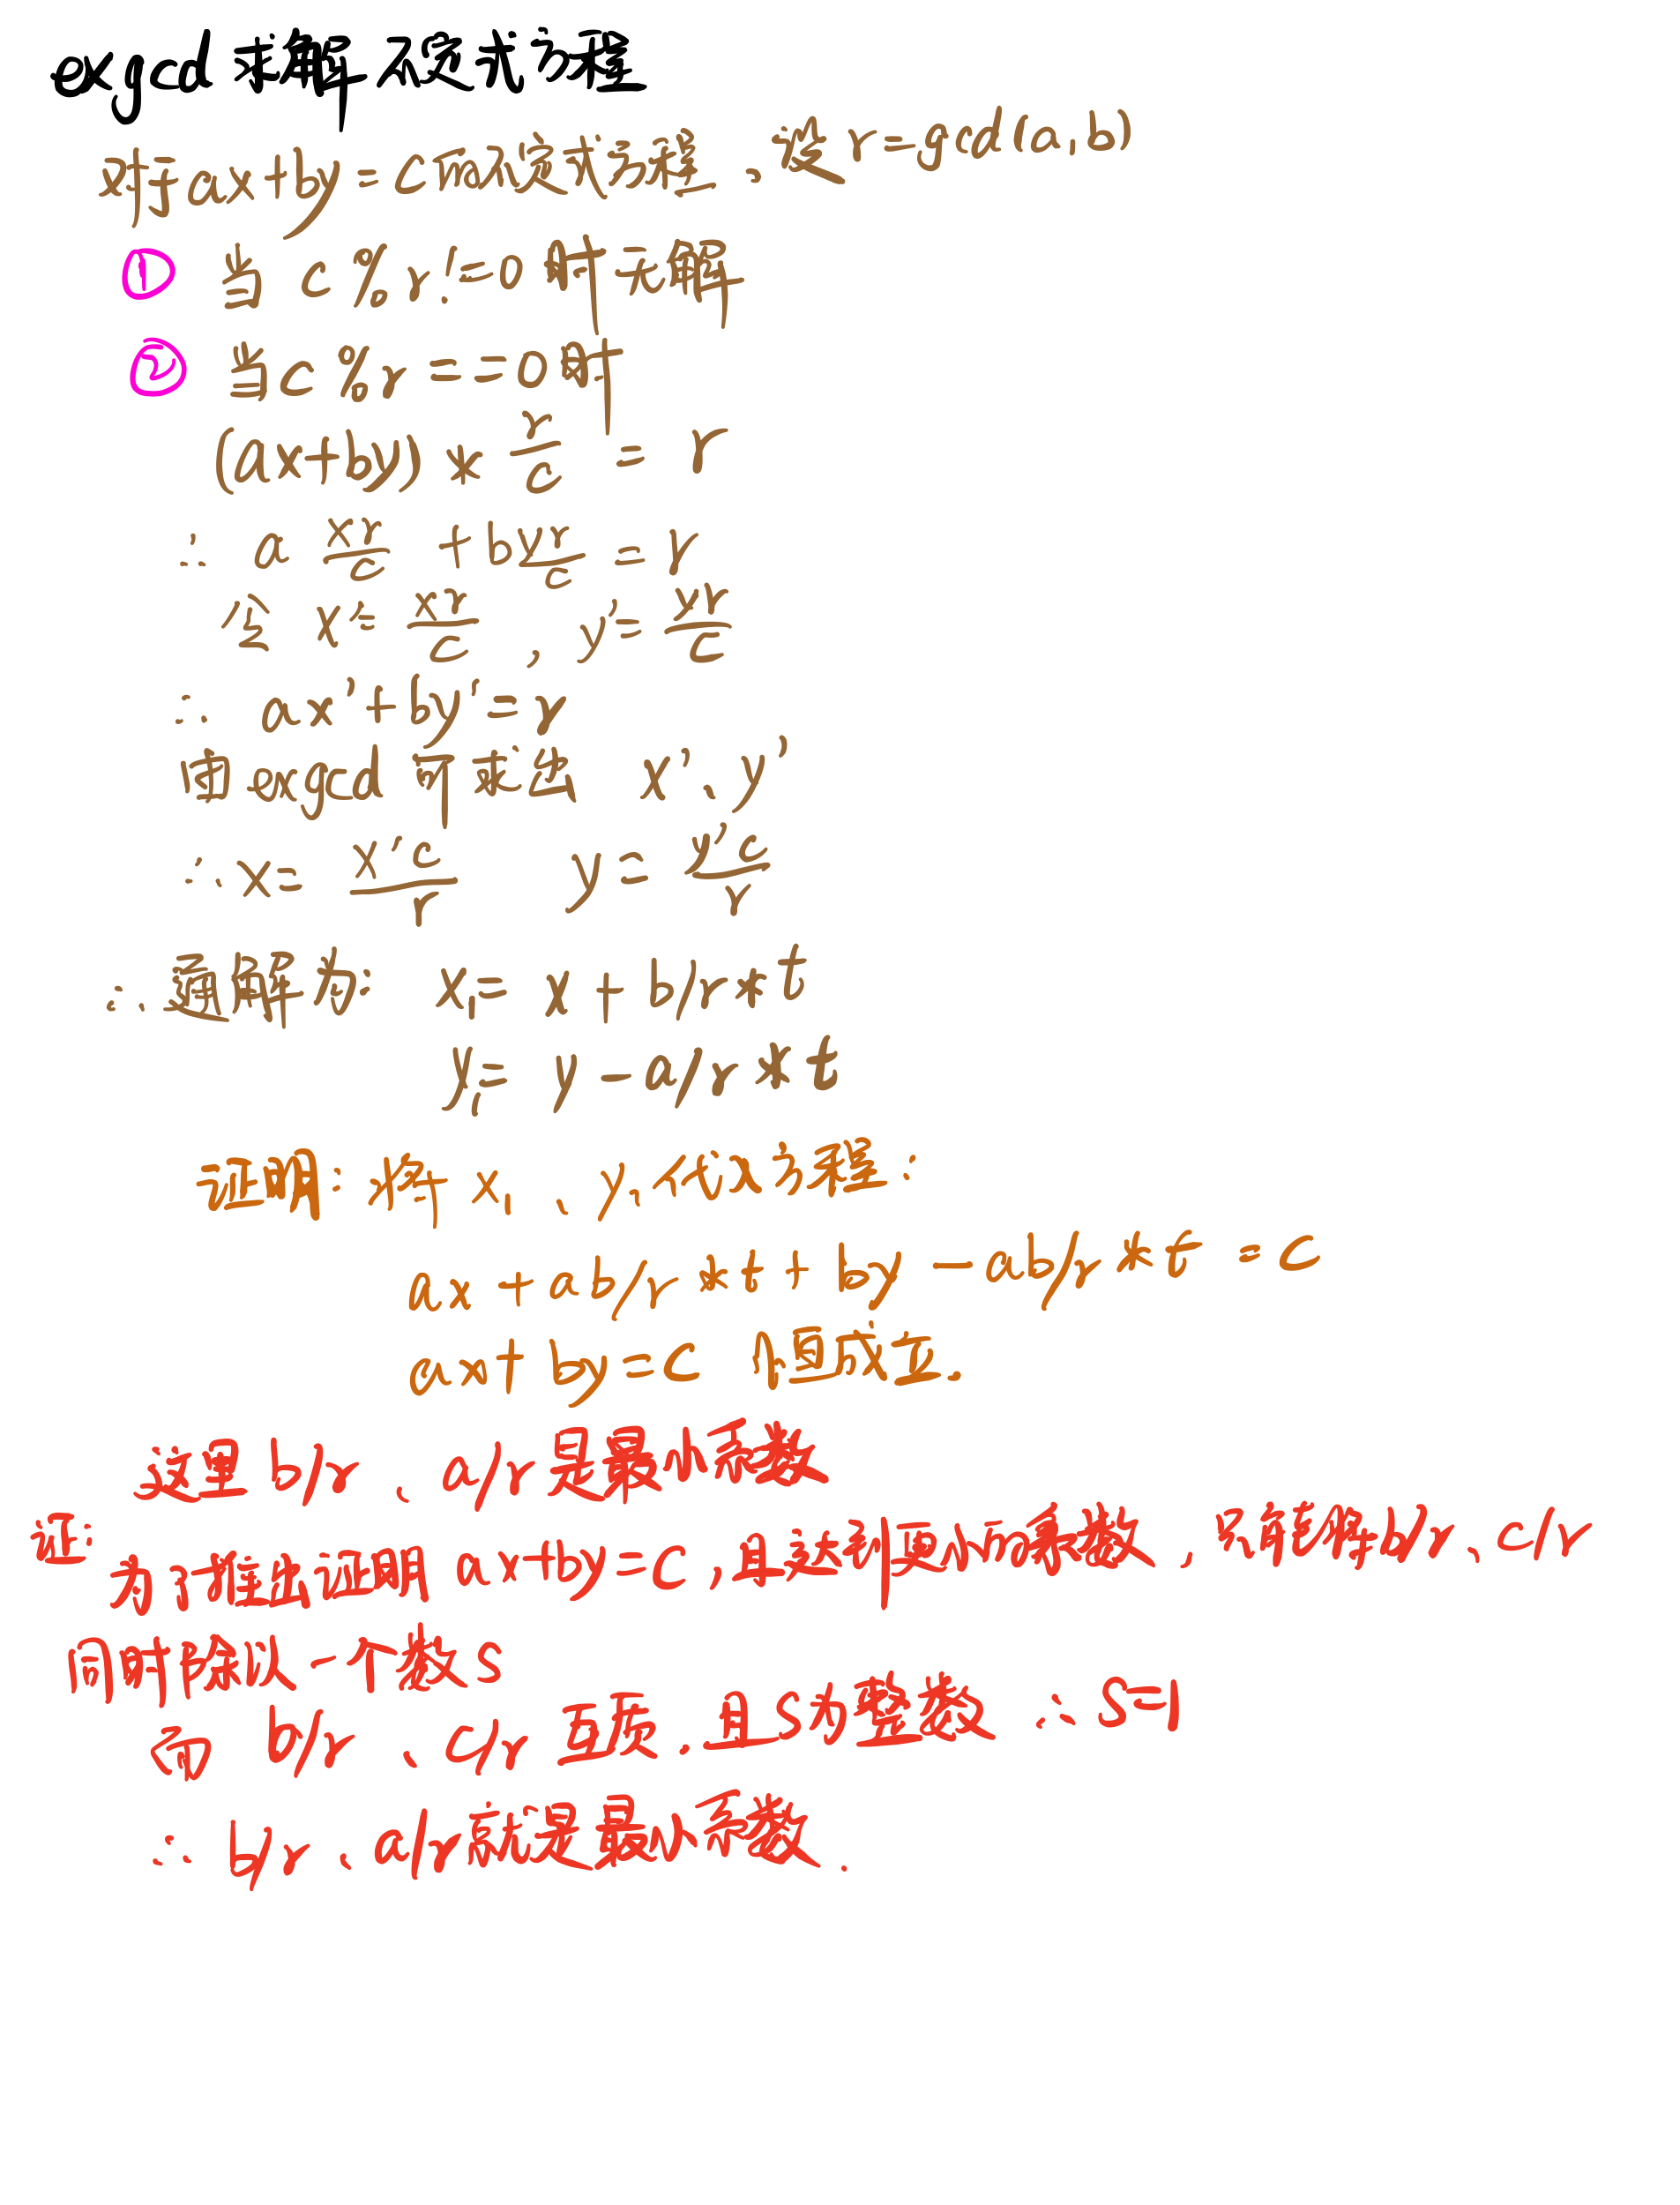 exgcd 求解不定式方程
对于ax+by=c的不定式方程、设 r=gcd(a,b)
① 当 c%r!=0 时无解
② 当c%r==0时
(ax+by) * r/c = r
∴ a xr/c + b yr/c = r
令 x'= xr/c , y'= yr/c
∴ ax'+by'=r
由exgcd可求出 x'、y'
∴ x= x'c/r y= y'c/r
∴通解为: x₁= x + b/r * t
y₁= y - a/r * t
证明: 将 x₁、y₁代入方程:
ax + ab/r * t + by - ab/r * t = c
ax + by = c 恒成立.
这里 b/r、a/r 是最小系数
证: 为了推出证明 ax+by=c, 且达到更小的系数, 只能将b/r、c/r
同时除以一个数s
而 b/r、c/r 互质, 且s为整数 ∴ s=1
∴ b/r、a/r就是最小系数.